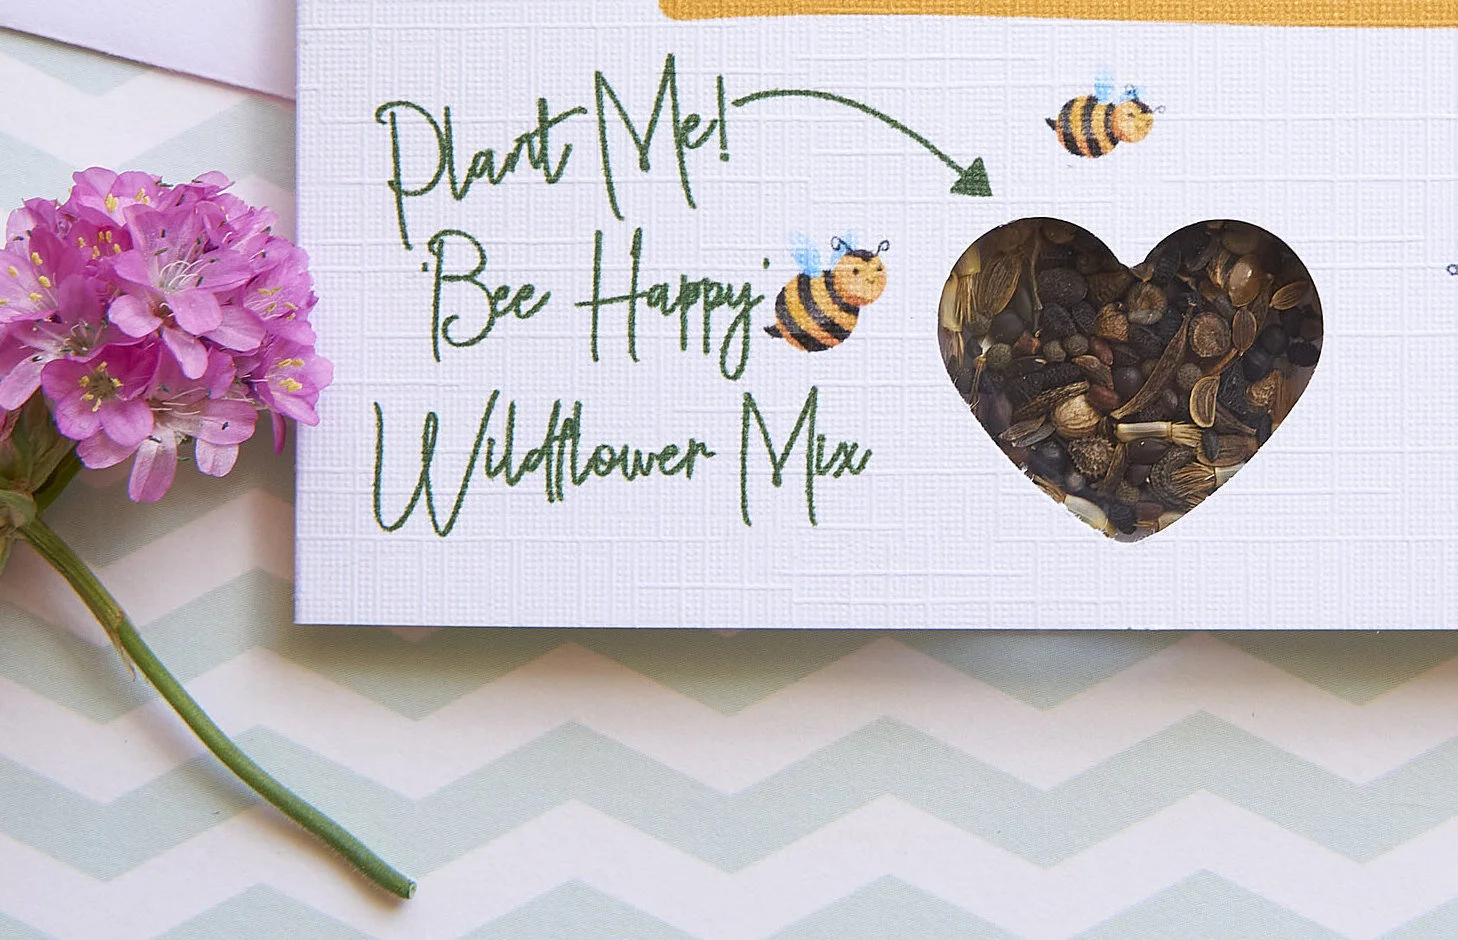 Plant Me!
'Bee Happy'
Wildflower Mix